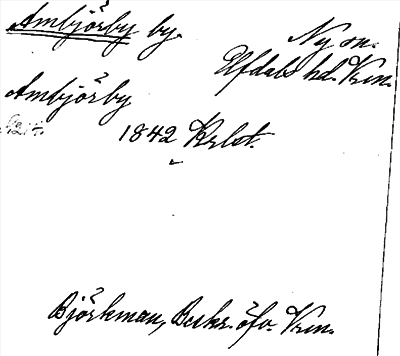 Ambjörby by.
Ny sn.
Elfdals hd. Vrm.
Ambjörby
1842 Krlst.
Björkman, Beskr. öfv. Vrm.